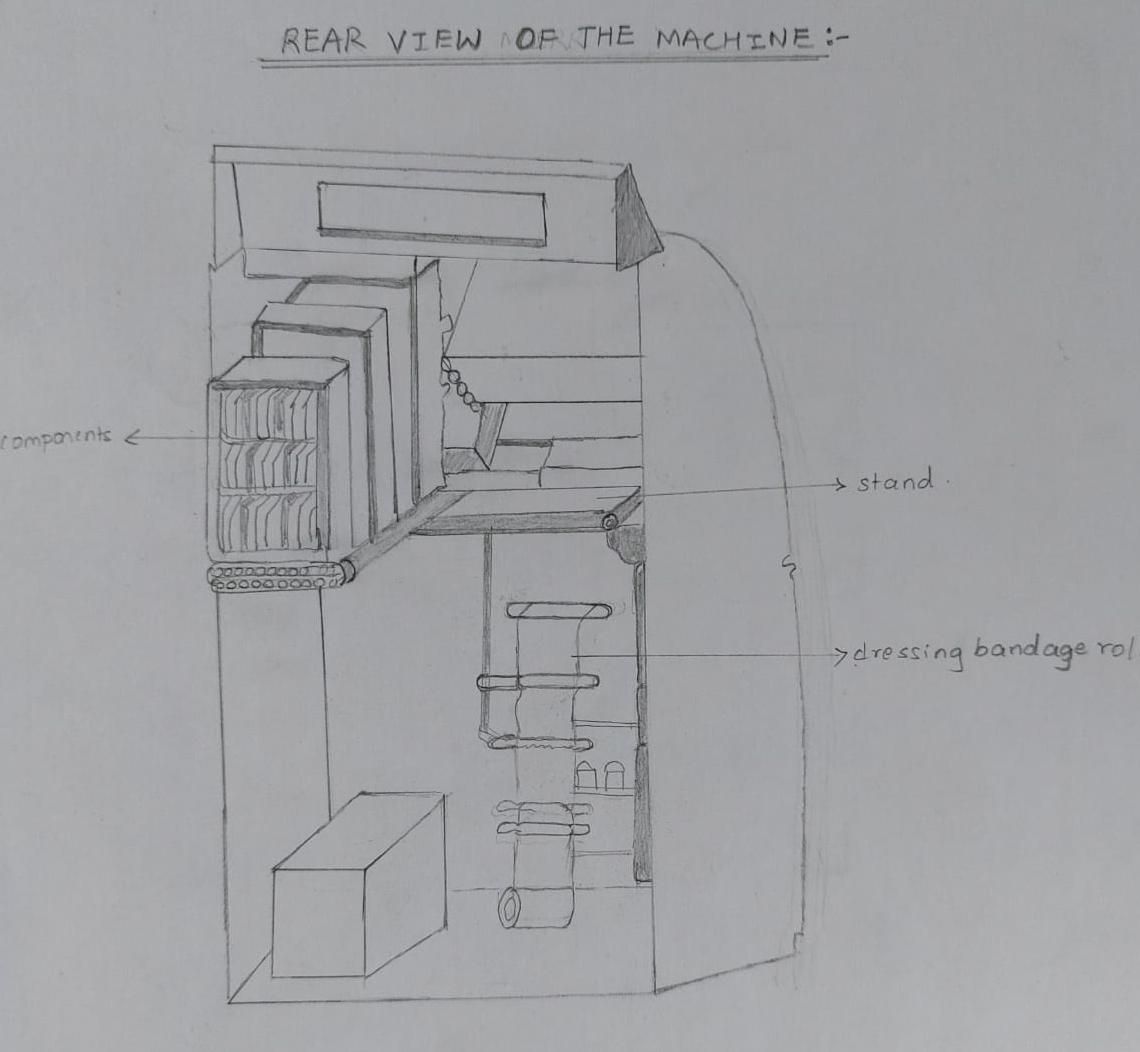 REAR VIEW OF THE MACHINE :-
components
stand.
dressing bandage rol